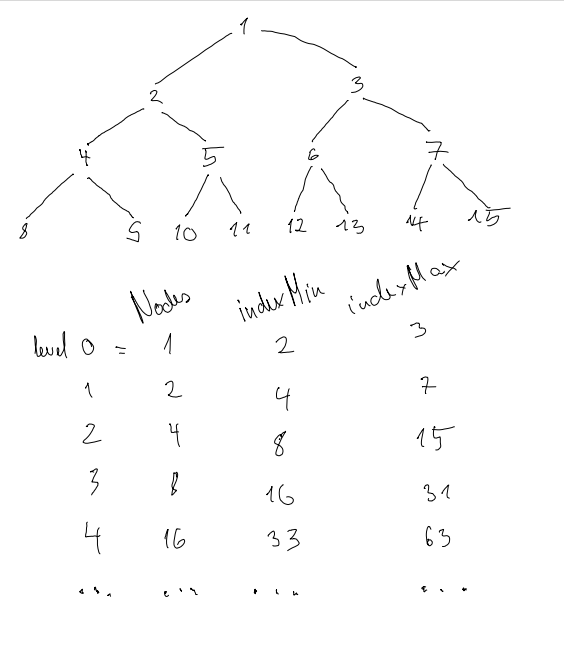 1
2 3
4 5 6 7
8 9 10 11 12 13 14 15
Nodes indexMin indexMax
level 0 = 1 2 3
1 2 4 7
2 4 8 15
3 8 16 31
4 16 33 63
... ... ... ...